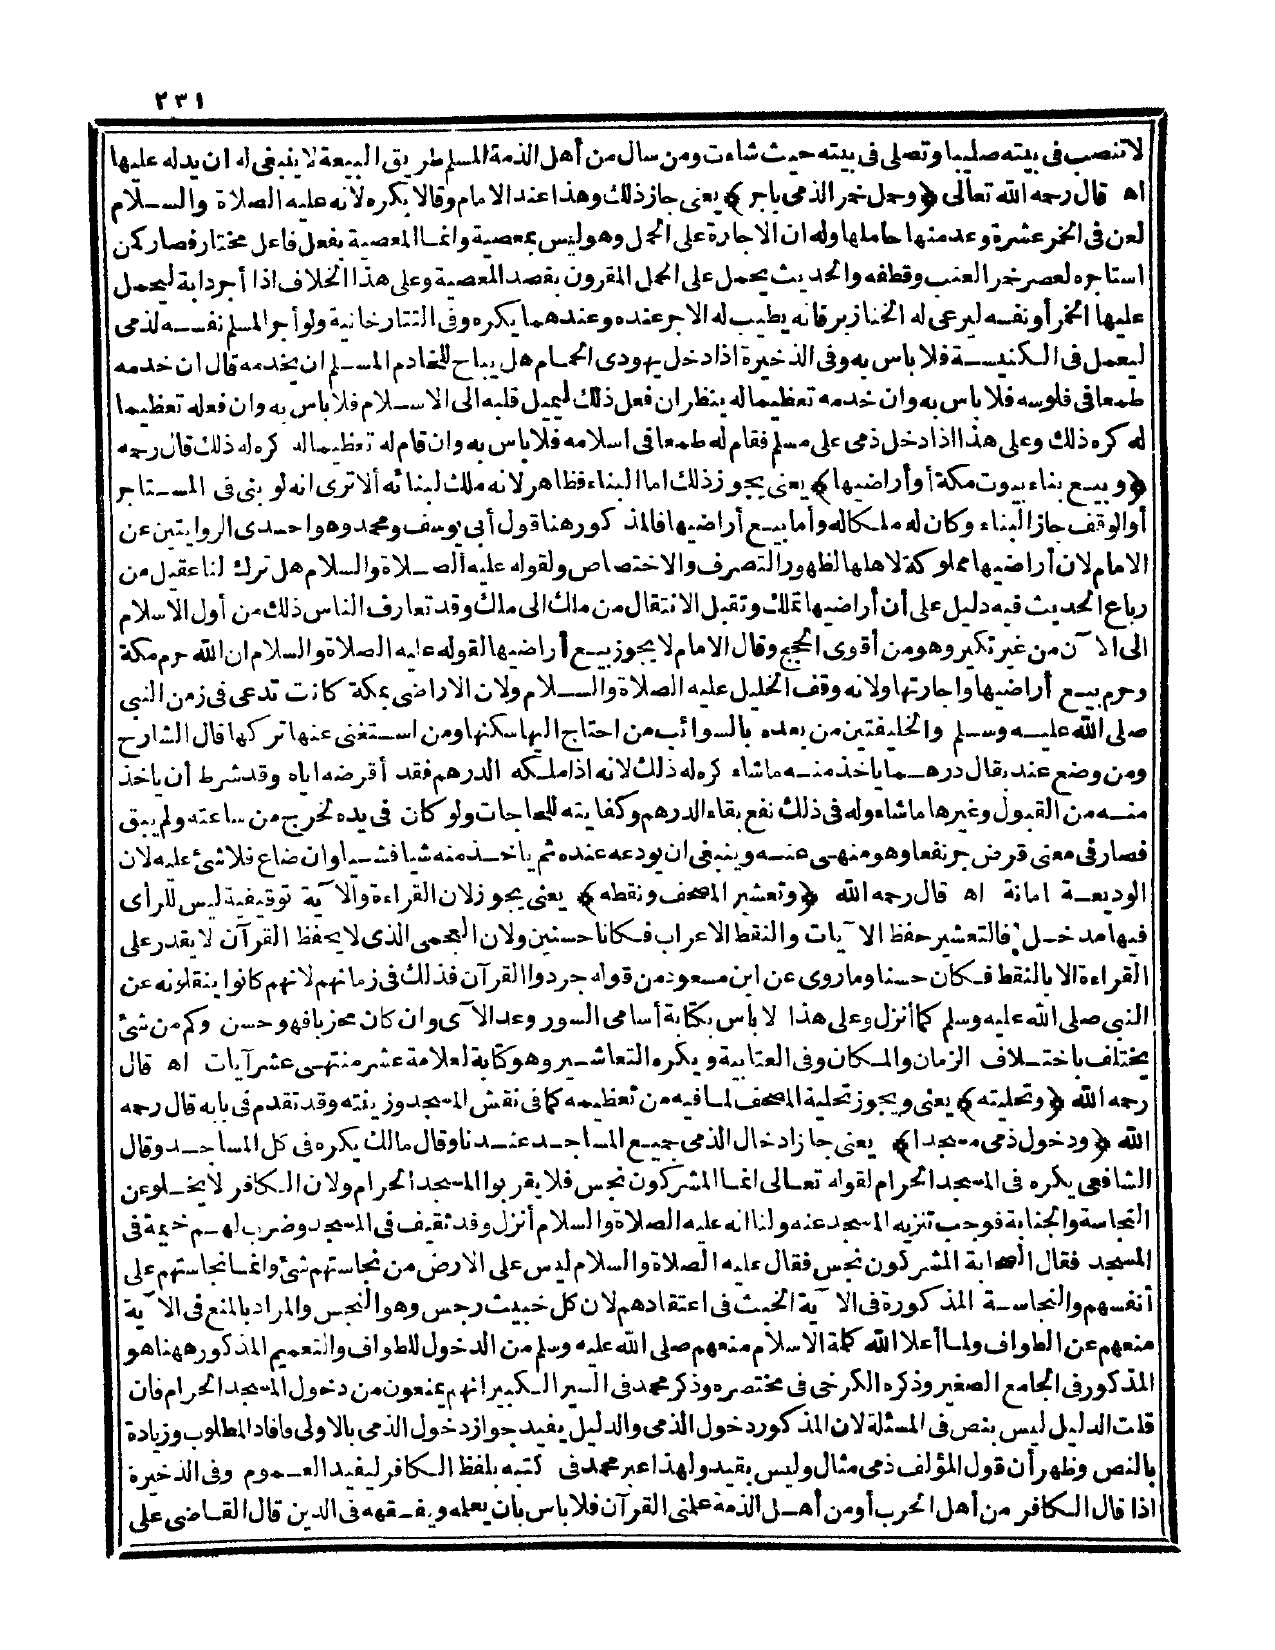 ٢٣١
لا تنصب فى بيته صليبا وتصلى فى بيته حيث شاءت ومن سال من أهل الذمة المسلم طريق البيعة لا ينبغى له ان يدله عليها
اه قال رحمه الله تعالى ﴿وحمل خمر الذمى باجر﴾ يعنى جاز ذلك وهذا عند الامام وقالا يكره لانه عليه الصلاة والسلام
لعن فى الخمر عشرة وعد منها حاملها وله ان الاجارة على الحمل وهو ليس بمعصية وانما المعصية بفعل فاعل مختار فصار كمن
استاجره لعصر خمر العنب وقطفه والحديث يحمل على الحمل المقرون بقصد المعصية وعلى هذا الخلاف اذا أجر دابة ليحمل
عليها الخمر أو نفسه ليرعى له الخنازير فانه يطيب له الاجر عنده وعندهما يكره وفى التتارخانية ولو أجر المسلم نفسه لذمى
ليعمل فى الكنيسة فلا باس به وفى الذخيرة اذا دخل يهودى الحمام هل يباح للخادم المسلم ان يخدمه قال ان خدمه
طمعا فى فلوسه فلا باس به وان خدمه تعظيما له ينظر ان فعل ذلك ليميل قلبه الى الاسلام فلا باس به وان فعله تعظيما
له كره ذلك وعلى هذا اذا دخل ذمى على مسلم فقام له طمعا فى اسلامه فلا باس به وان قام له تعظيما له كره له ذلك قال رحمه
﴿وبيع بناء بيوت مكة أو أراضيها﴾ يعنى يجوز ذلك اما البناء فظاهر لانه ملك لبنائه ألا ترى انه لو بنى فى المستاجر
أو الوقف جاز البناء وكان له ملكا له وأما بيع أراضيها فالمذكور هنا قول أبى يوسف ومحمد وهو احدى الروايتين عن
الامام لان أراضيها مملوكة لاهلها لظهور التصرف والاختصاص ولقوله عليه الصلاة والسلام هل ترك لنا عقيل من
رباع الحديث فيه دليل على أن أراضيها تملك وتقبل الانتقال من ملك الى ملك وقد تعارف الناس ذلك من أول الاسلام
الى الآن من غير نكير وهو من أقوى الحجج وقال الامام لا يجوز بيع أراضيها لقوله عليه الصلاة والسلام ان الله حرم مكة
وحرم بيع أراضيها واجارتها ولانه وقف الخليل عليه الصلاة والسلام ولان الاراضى بمكة كانت تدعى فى زمن النبى
صلى الله عليه وسلم والخليفتين من بعده بالسوائب من احتاج اليها سكنها ومن استغنى عنها تركها قال الشارح
ومن وضع عند بقال درهما ياخذ منه ما شاء كره له ذلك لانه اذا ملكه الدرهم فقد أقرضه اياه وقد شرط أن ياخذ
منه من القبول وغيرها ما شاء وله فى ذلك نفع بقاء الدرهم وكفايته للحاجات ولو كان فى يده لخرج من ساعته ولم يبق
فصار فى معنى قرض جر نفعا وهو منهى عنه وينبغى ان يودعه عنده ثم ياخذ منه شيا فشيا وان ضاع فلا شئ عليه لان
الوديعة امانة اه قال رحمه الله ﴿وتعشير المصحف ونقطه﴾ يعنى يجوز لان القراءة والآية توقيفية ليس للرأى
فيها مدخل فالتعشير حفظ الآيات والنقط الاعراب فكانا حسنين ولان العجمى الذى لا يحفظ القرآن لا يقدر على
القراءة الا بالنقط فكان حسنا وما روى عن ابن مسعود من قوله جردوا القرآن فذلك فى زمانهم لانهم كانوا ينقلونه عن
النبى صلى الله عليه وسلم كما أنزل وعلى هذا لا باس بكتابة أسامى السور وعد الآى وان كان محرزا فهو حسن وكم من شئ
يختلف باختلاف الزمان والمكان وفى العتابية ويكره التعاشير وهو كتابة لعلامة عشر منتهى عشر آيات اه قال
رحمه الله ﴿وتحليته﴾ يعنى ويجوز تحلية المصحف لما فيه من تعظيمه كما فى نقش المسجد وزينته وقد تقدم فى بابه قال رحمه
الله ﴿ودخول ذمى مسجدا﴾ يعنى جاز ادخال الذمى جميع المساجد عندنا وقال مالك يكره فى كل المساجد وقال
الشافعى يكره فى المسجد الحرام لقوله تعالى انما المشركون نجس فلا يقربوا المسجد الحرام ولان الكافر لا يخلو عن
النجاسة والجنابة فوجب تنزيه المسجد عنه ولنا انه عليه الصلاة والسلام أنزل وفد ثقيف فى المسجد وضرب لهم خيمة فى
المسجد فقال الصحابة المشركون نجس فقال عليه الصلاة والسلام ليس على الارض من نجاستهم شئ وانما نجاستهم على
أنفسهم والنجاسة المذكورة فى الآية الخبث فى اعتقادهم لان كل خبيث رجس وهو النجس والمراد بالمنع فى الآية
منعهم عن الطواف ولما أعلا الله كلمة الاسلام منعهم صلى الله عليه وسلم من الدخول للطواف والتعميم المذكور ههنا هو
المذكور فى الجامع الصغير وذكره الكرخى فى مختصره وذكر محمد فى السير الكبير انهم يمنعون من دخول المسجد الحرام فان
قلت الدليل ليس بنص فى المسئلة لان المذكور دخول الذمى والدليل يفيد جواز دخول الذمى بالاولى فافاد المطلوب وزيادة
بالنص وظهر أن قول المؤلف ذمى مثال وليس بقيد ولهذا عبر محمد فى كتبه بلفظ الكافر ليفيد العموم وفى الذخيرة
اذا قال الكافر من أهل الحرب أو من أهل الذمة علمنى القرآن فلا باس بان يعلمه ويفقهه فى الدين قال القاضى على